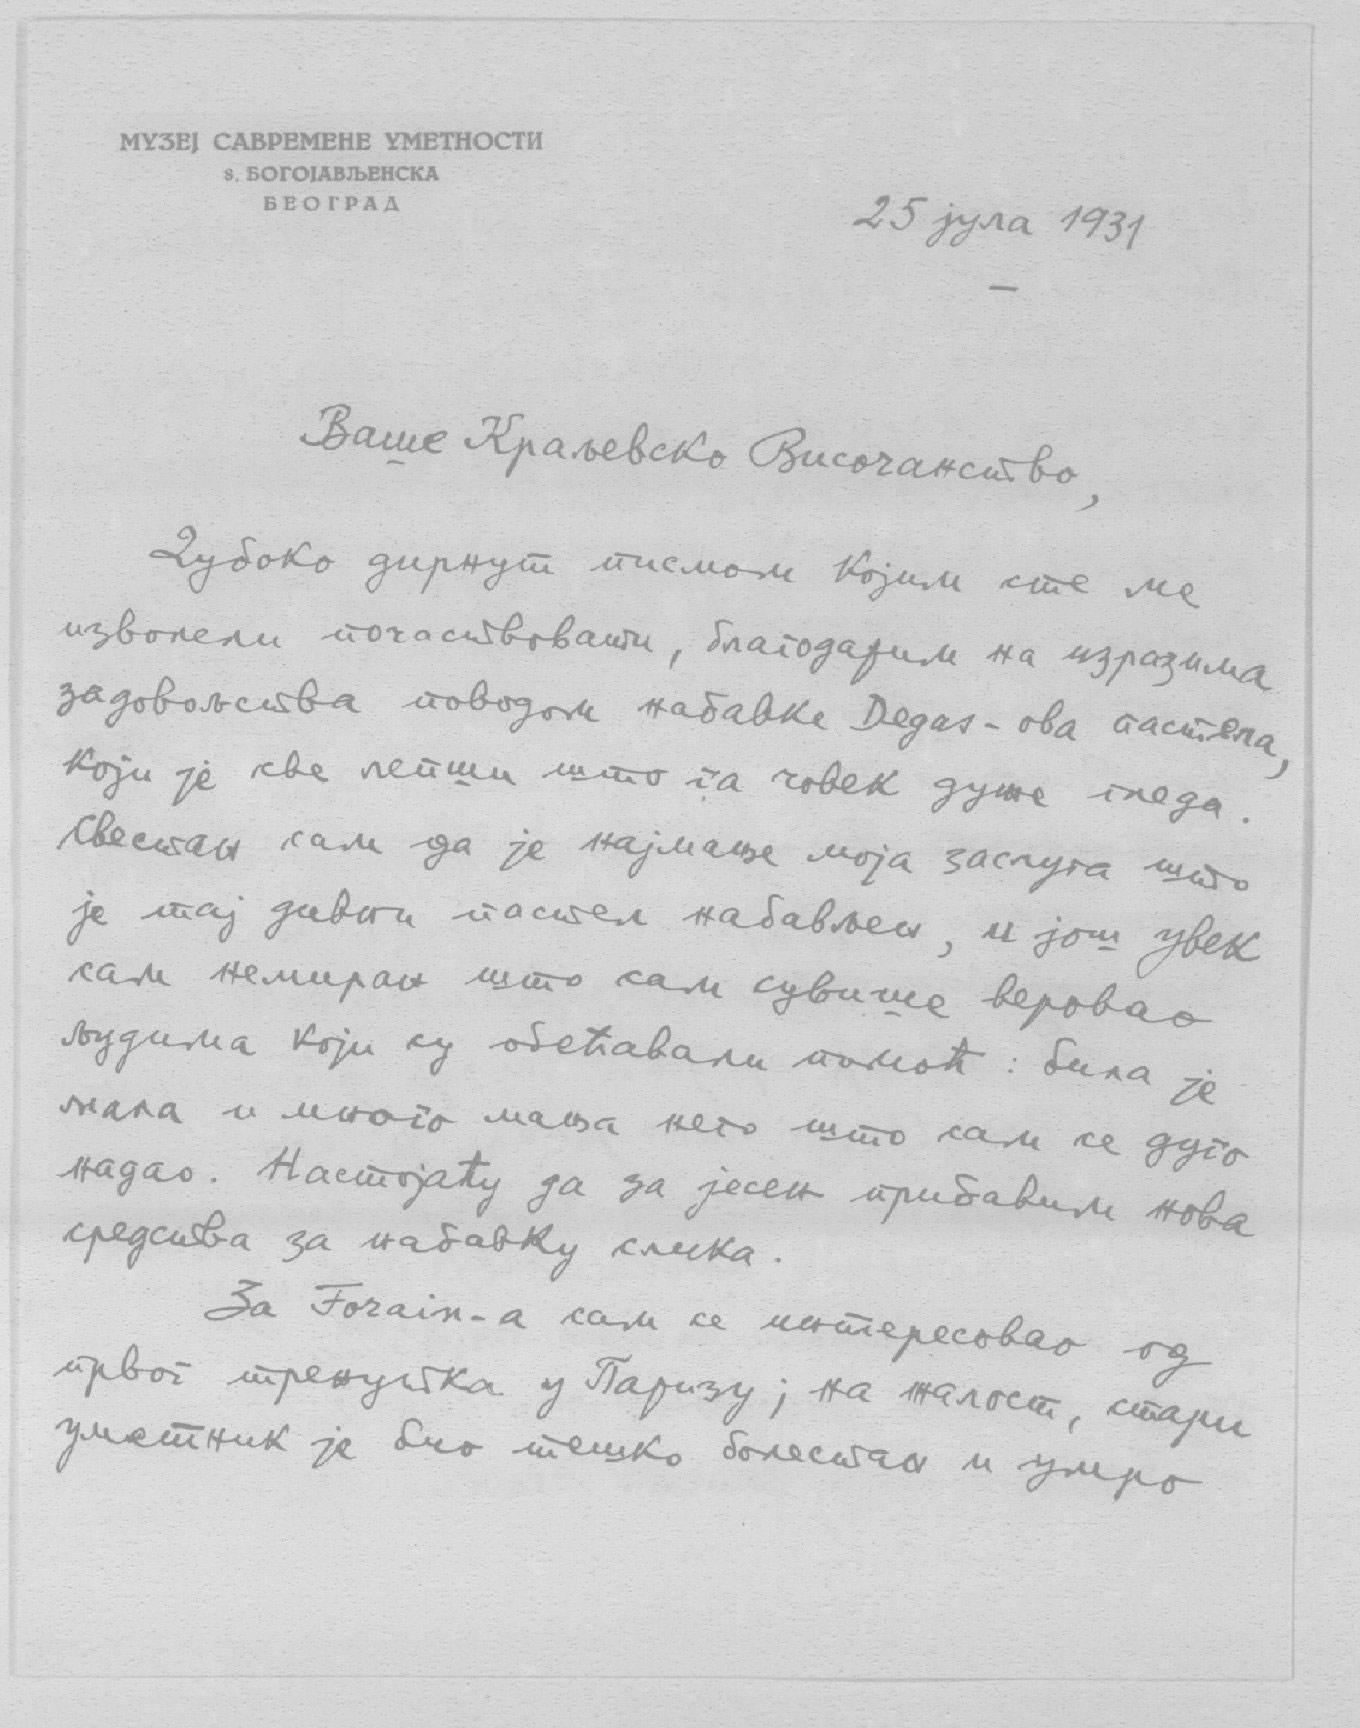 МУЗЕЈ САВРЕМЕНЕ УМЕТНОСТИ
8. БОГОЈАВЉЕНСКА
БЕОГРАД
25 јула 1931
Ваше Краљевско Височанство,
Дубоко дирнут писмом којим сте ме
изволели почаствовати, благодарим на изразима
задовољства поводом набавке Degas-ова пастела,
који је све лепши што га човек дуже гледа.
Свестан сам да је најмање моја заслуга што
је тај дивни пастел набављен, и још увек
сам немиран што сам сувише веровао
људима који су обећавали помоћ: била је
мала и много мања него што сам се дуго
надао. Настојаћу да за јесен прибавим нова
средства за набавку слика.
За Forain-а сам се интересовао од
првог тренутка у Паризу; на жалост, стари
уметник је био тешко болестан и умро